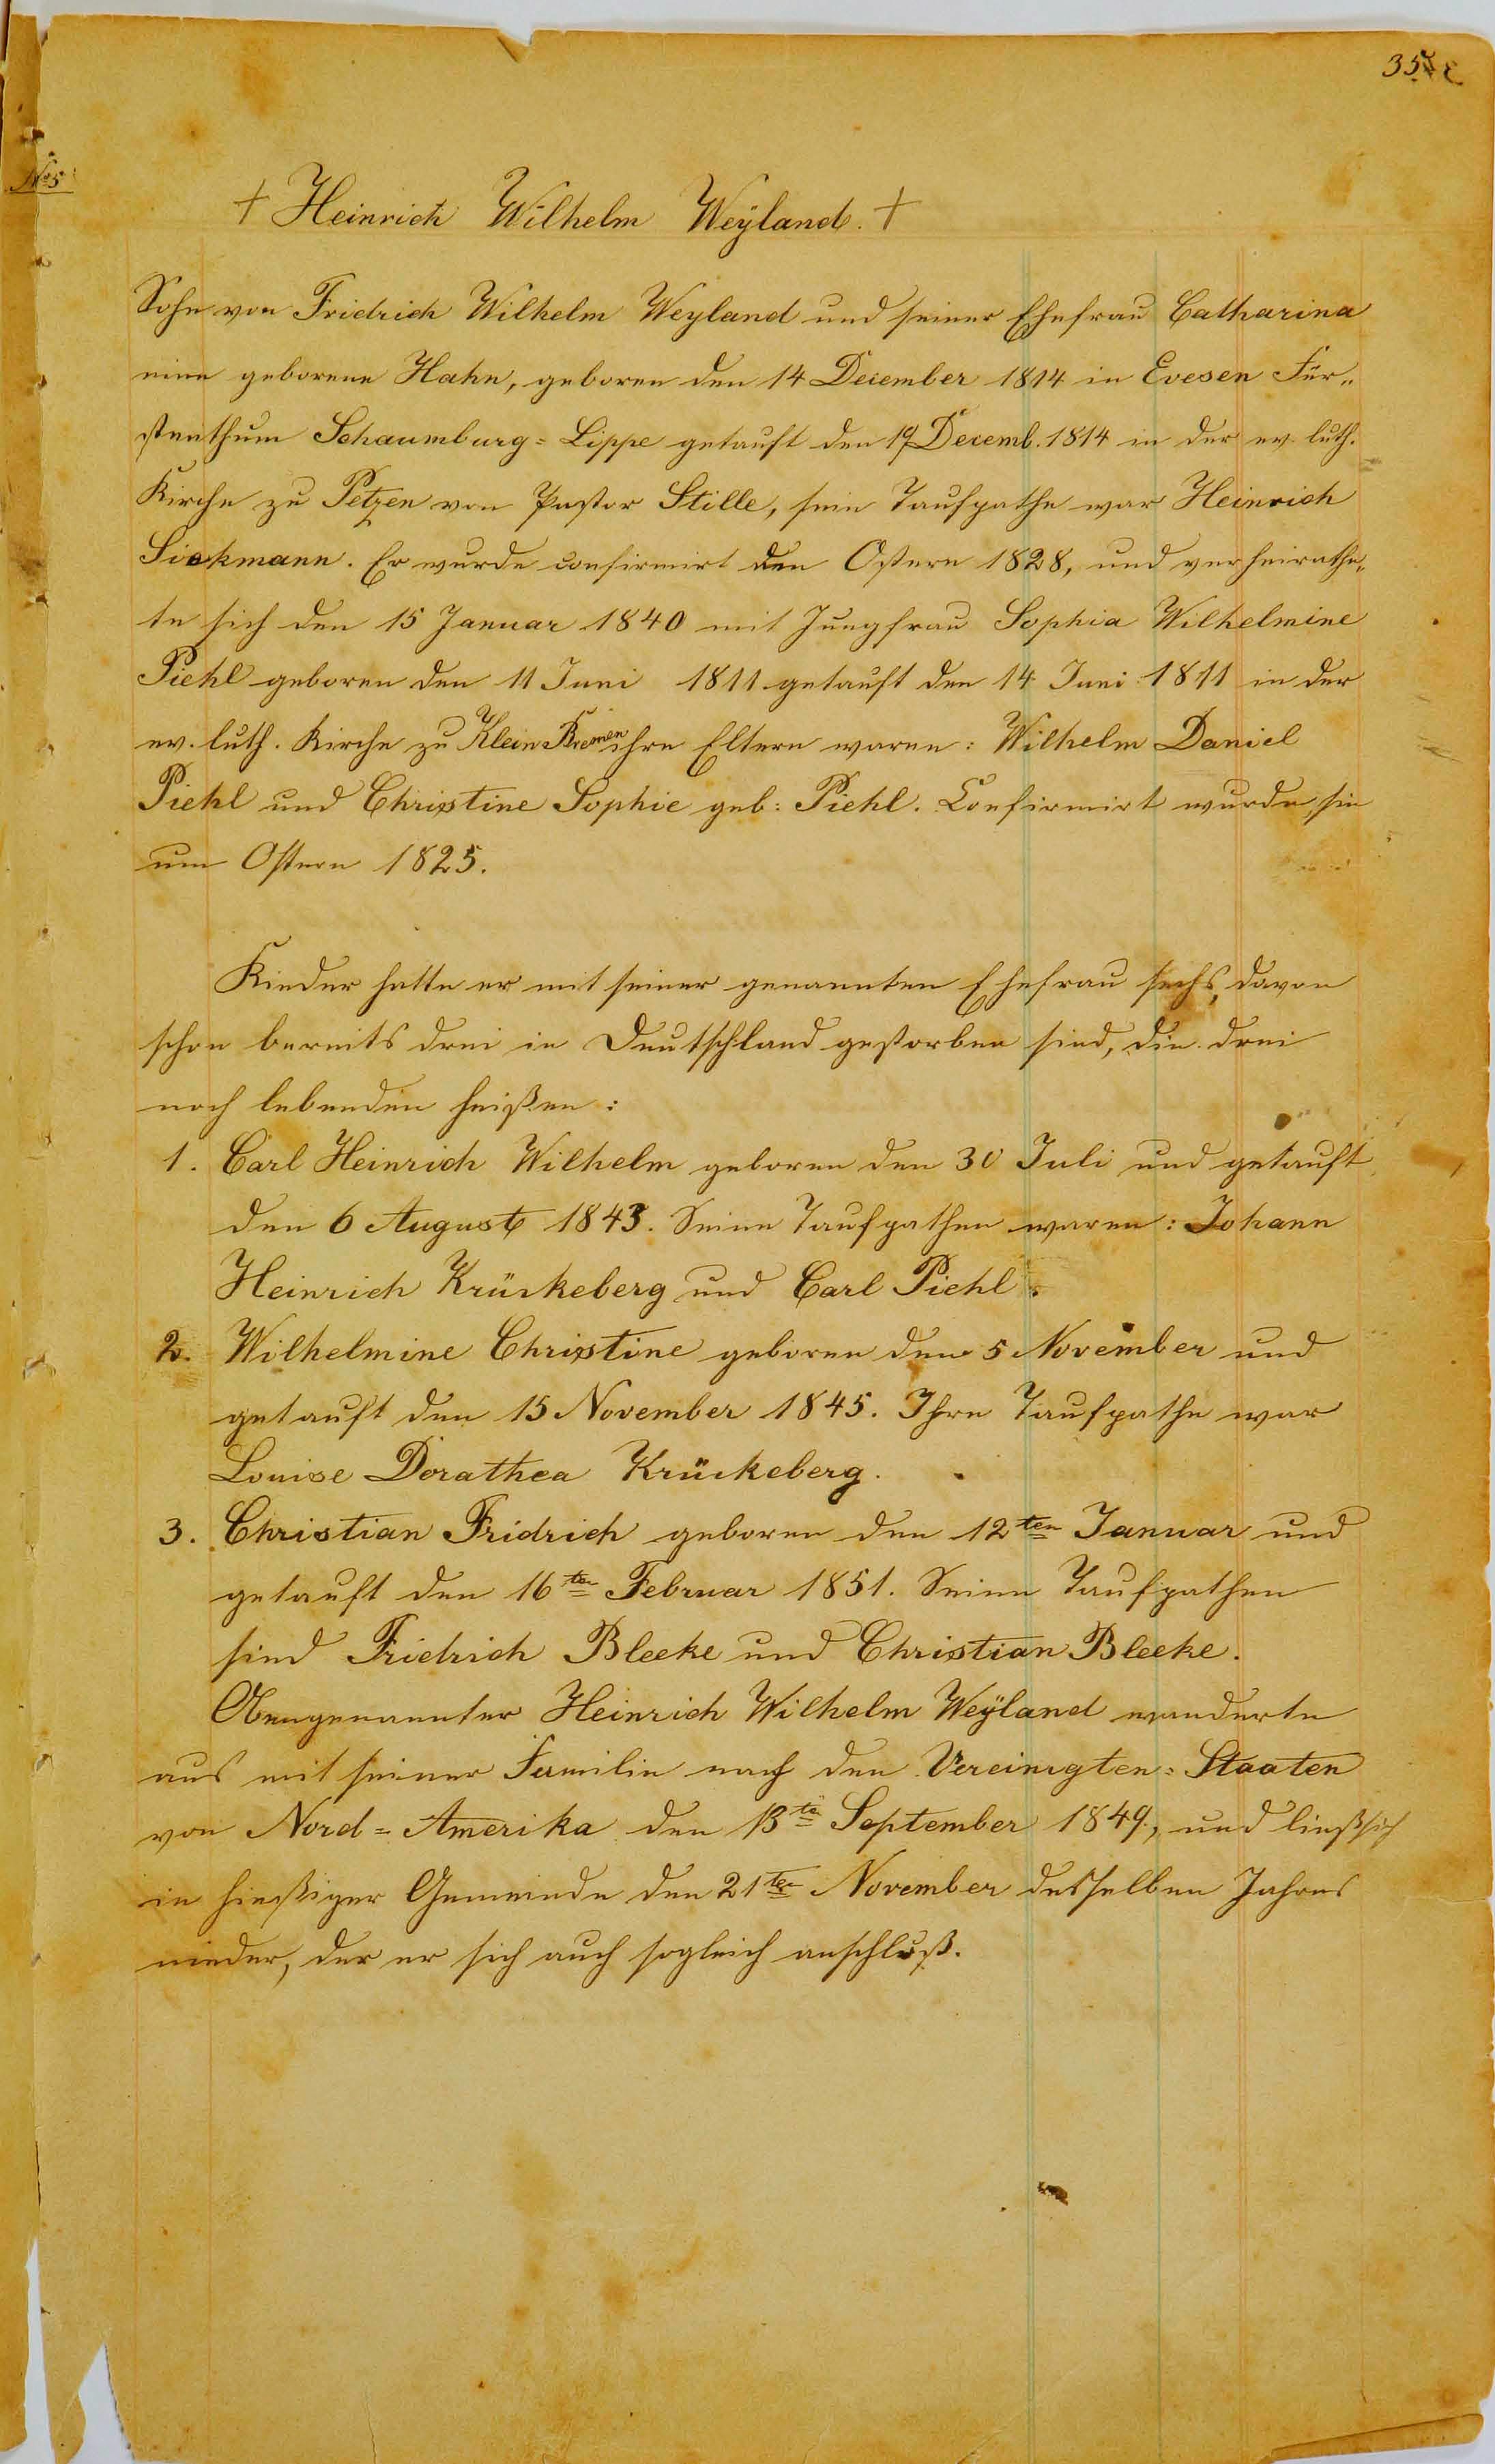 35
No 5
+ Heinrich Wilhelm Weÿland. +
Sohn von Fridrich Wilhelm Weyland und seiner Ehefrau Catharina
eine geborene Hahn, geboren den 14 December 1814 in Evesen Für„
stenthum Schaumburg=Lippe getauft den 19 Decemb. 1814 in der ev. luth.
Kirche zu Petzen von Pastor Stille, sein Taufpathe war Heinrich
Siekmann. Er wurde confirmirt den Ostern 1828, und verheirathe„
te sich den 15 Januar 1840 mit Jungfrau Sophia Wilhelmine
Piehl geboren den 11 Juni 1811 getauft den 14 Juni 1811 in der
ev. luth. Kirche zu Klein Bremen ihre Eltern waren: Wilhelm Daniel
Piehl und Christine Sophie geb: Piehl. Confirmirt wurde sie
um Ostern 1825.
Kinder hatte er mit seiner genannten Ehefrau sechs, davon
schon bereits drei in Deutschland gestorben sind, die drei
noch lebenden heißen:
1. Carl Heinrich Wilhelm geboren den 30 Juli und getauft
den 6 August 1843. Seine Taufpathen waren: Johann
Heinrich Krückeberg und Carl Piehl.
2. Wilhelmine Christine geboren den 5 November und
getauft den 15 November 1845. Ihre Taufpathe war
Louise Dorathea Krückeberg.
3. Christian Fridrich geboren den 12ten Januar und
getauft den 16ten Februar 1851. Seine Taufpathen
sind Friedrich Bleeke und Christian Bleeke.
Obengenannter Heinrich Wilhelm Weÿland wanderte
aus mit seiner Familie nach den Vereinigten=Staaten
von Nord=Amerika den 13te September 1849, und ließ sich
in hießiger Gemeinde den 21ten November desselben Jahres
nieder, der er sich auch sogleich anschloß.